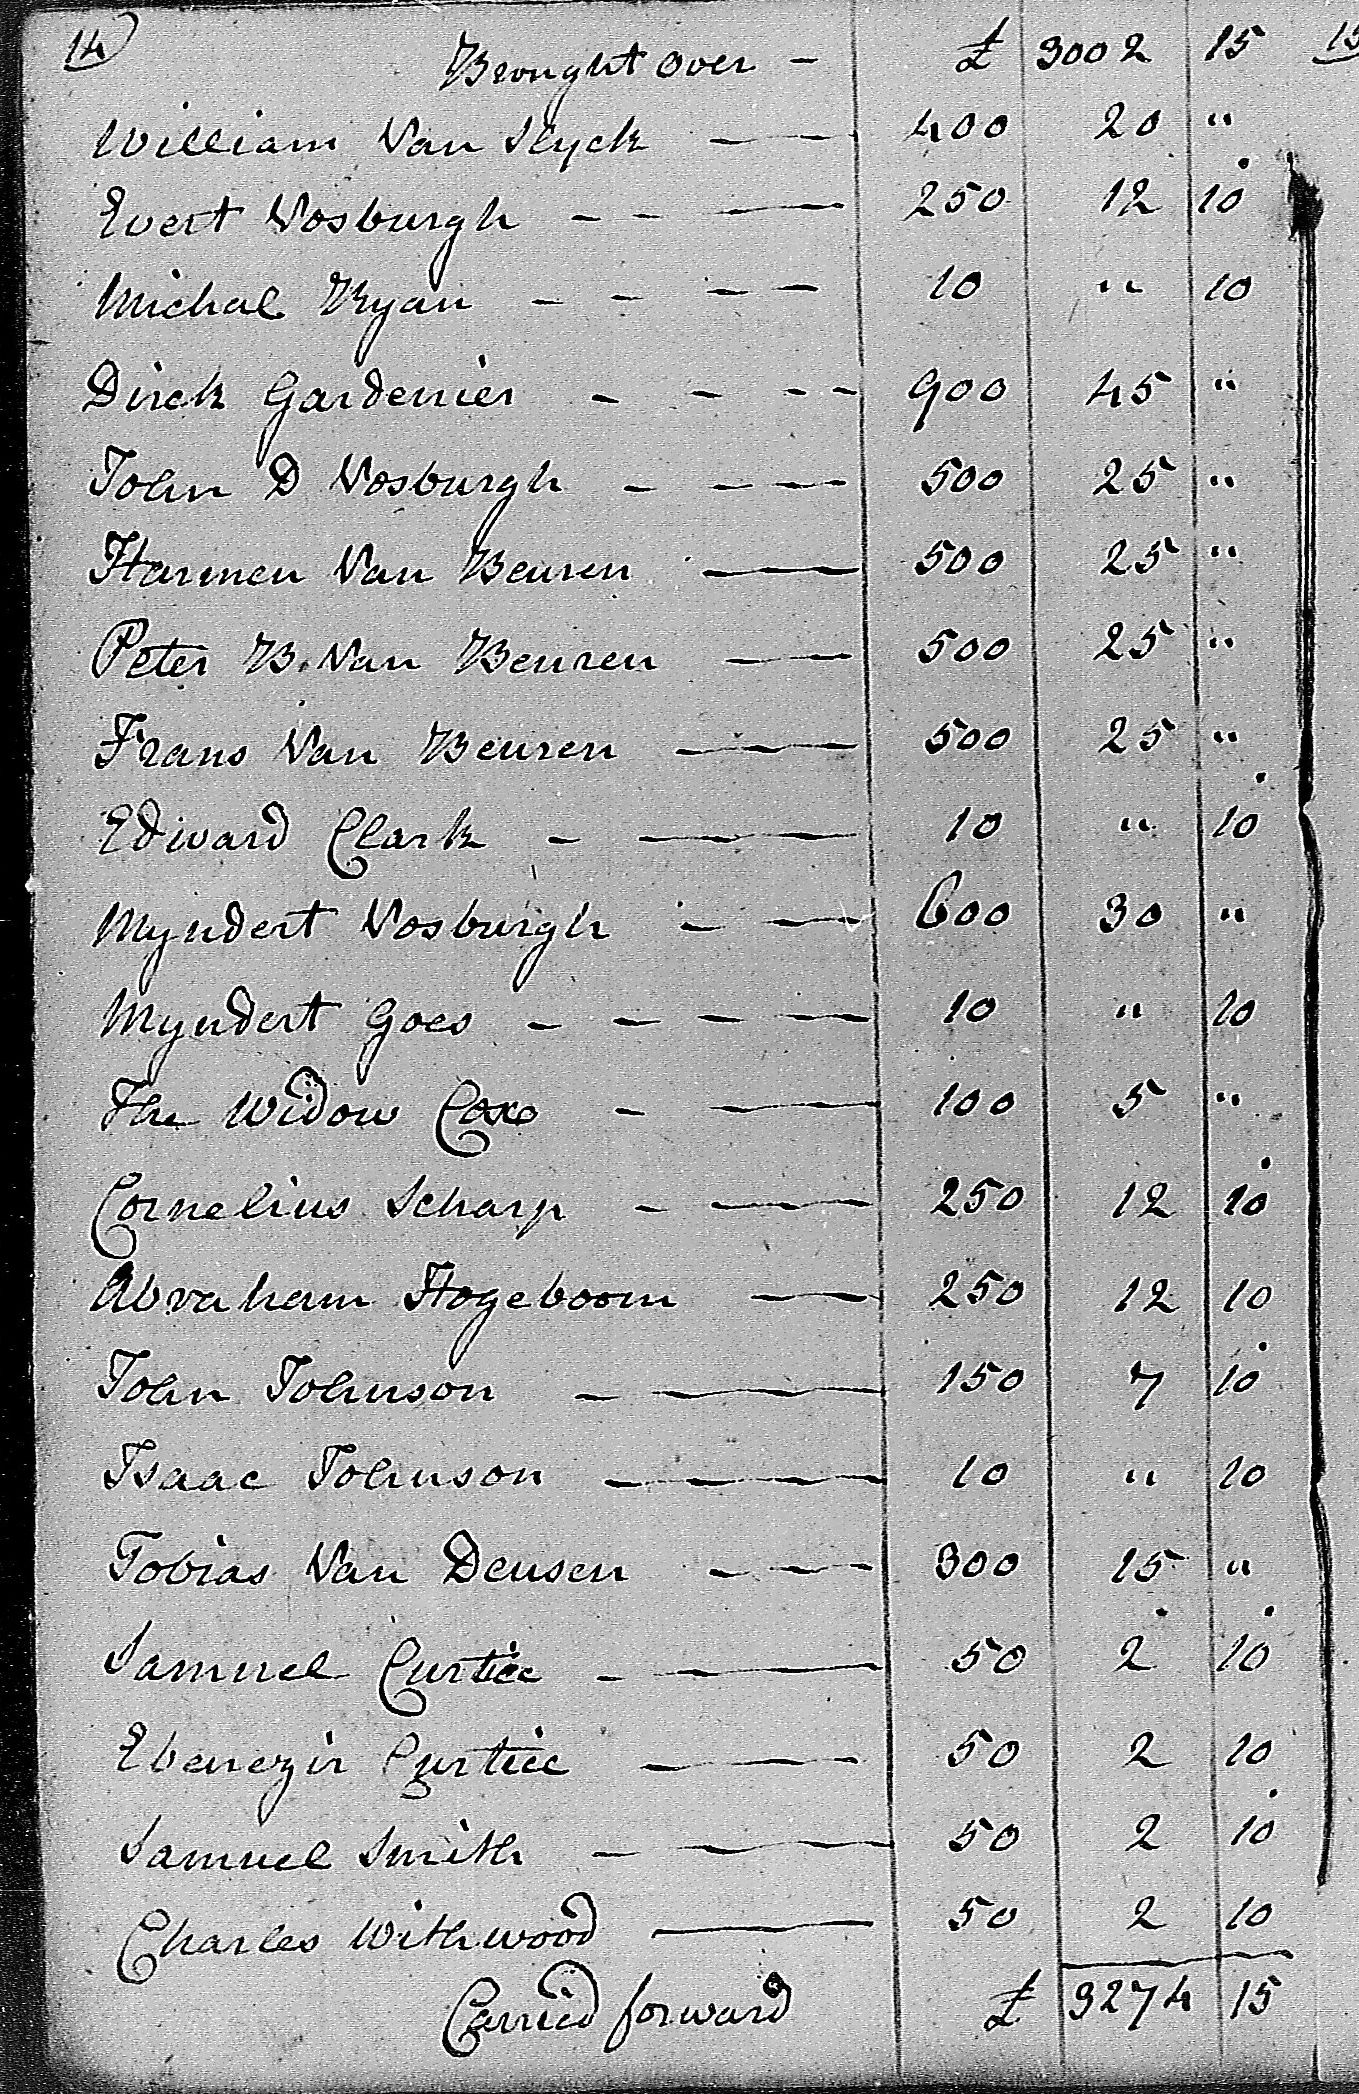 14 Brought over - £ 3002 15 15
William Van Slyck 400 20 "
Evert Vosburgh 250 12 10
Michal Ryan 10 " 10
Dirck Gardenier 900 45 "
John D Vosburgh 500 25 "
Harmen Van Beuren 500 25 "
Peter B. Van Beuren 500 25 "
Frans Van Beuren 500 25 "
Edward Clark 10 " 10
Myndert Vosburgh 600 30 "
Myndert Goes 10 " 10
The Widow Coxe 100 5 "
Cornelius Scharp 250 12 10
Abraham Hogeboom 250 12 10
John Johnson 150 7 10
Isaac Johnson 10 " 10
Tobias Van Deusen 300 15 "
Samuel Curtice 50 2 10
Ebenezir Curtice 50 2 10
Samuel Smith 50 2 10
Charles Withwood 50 2 10
Carried forward £ 3274 15